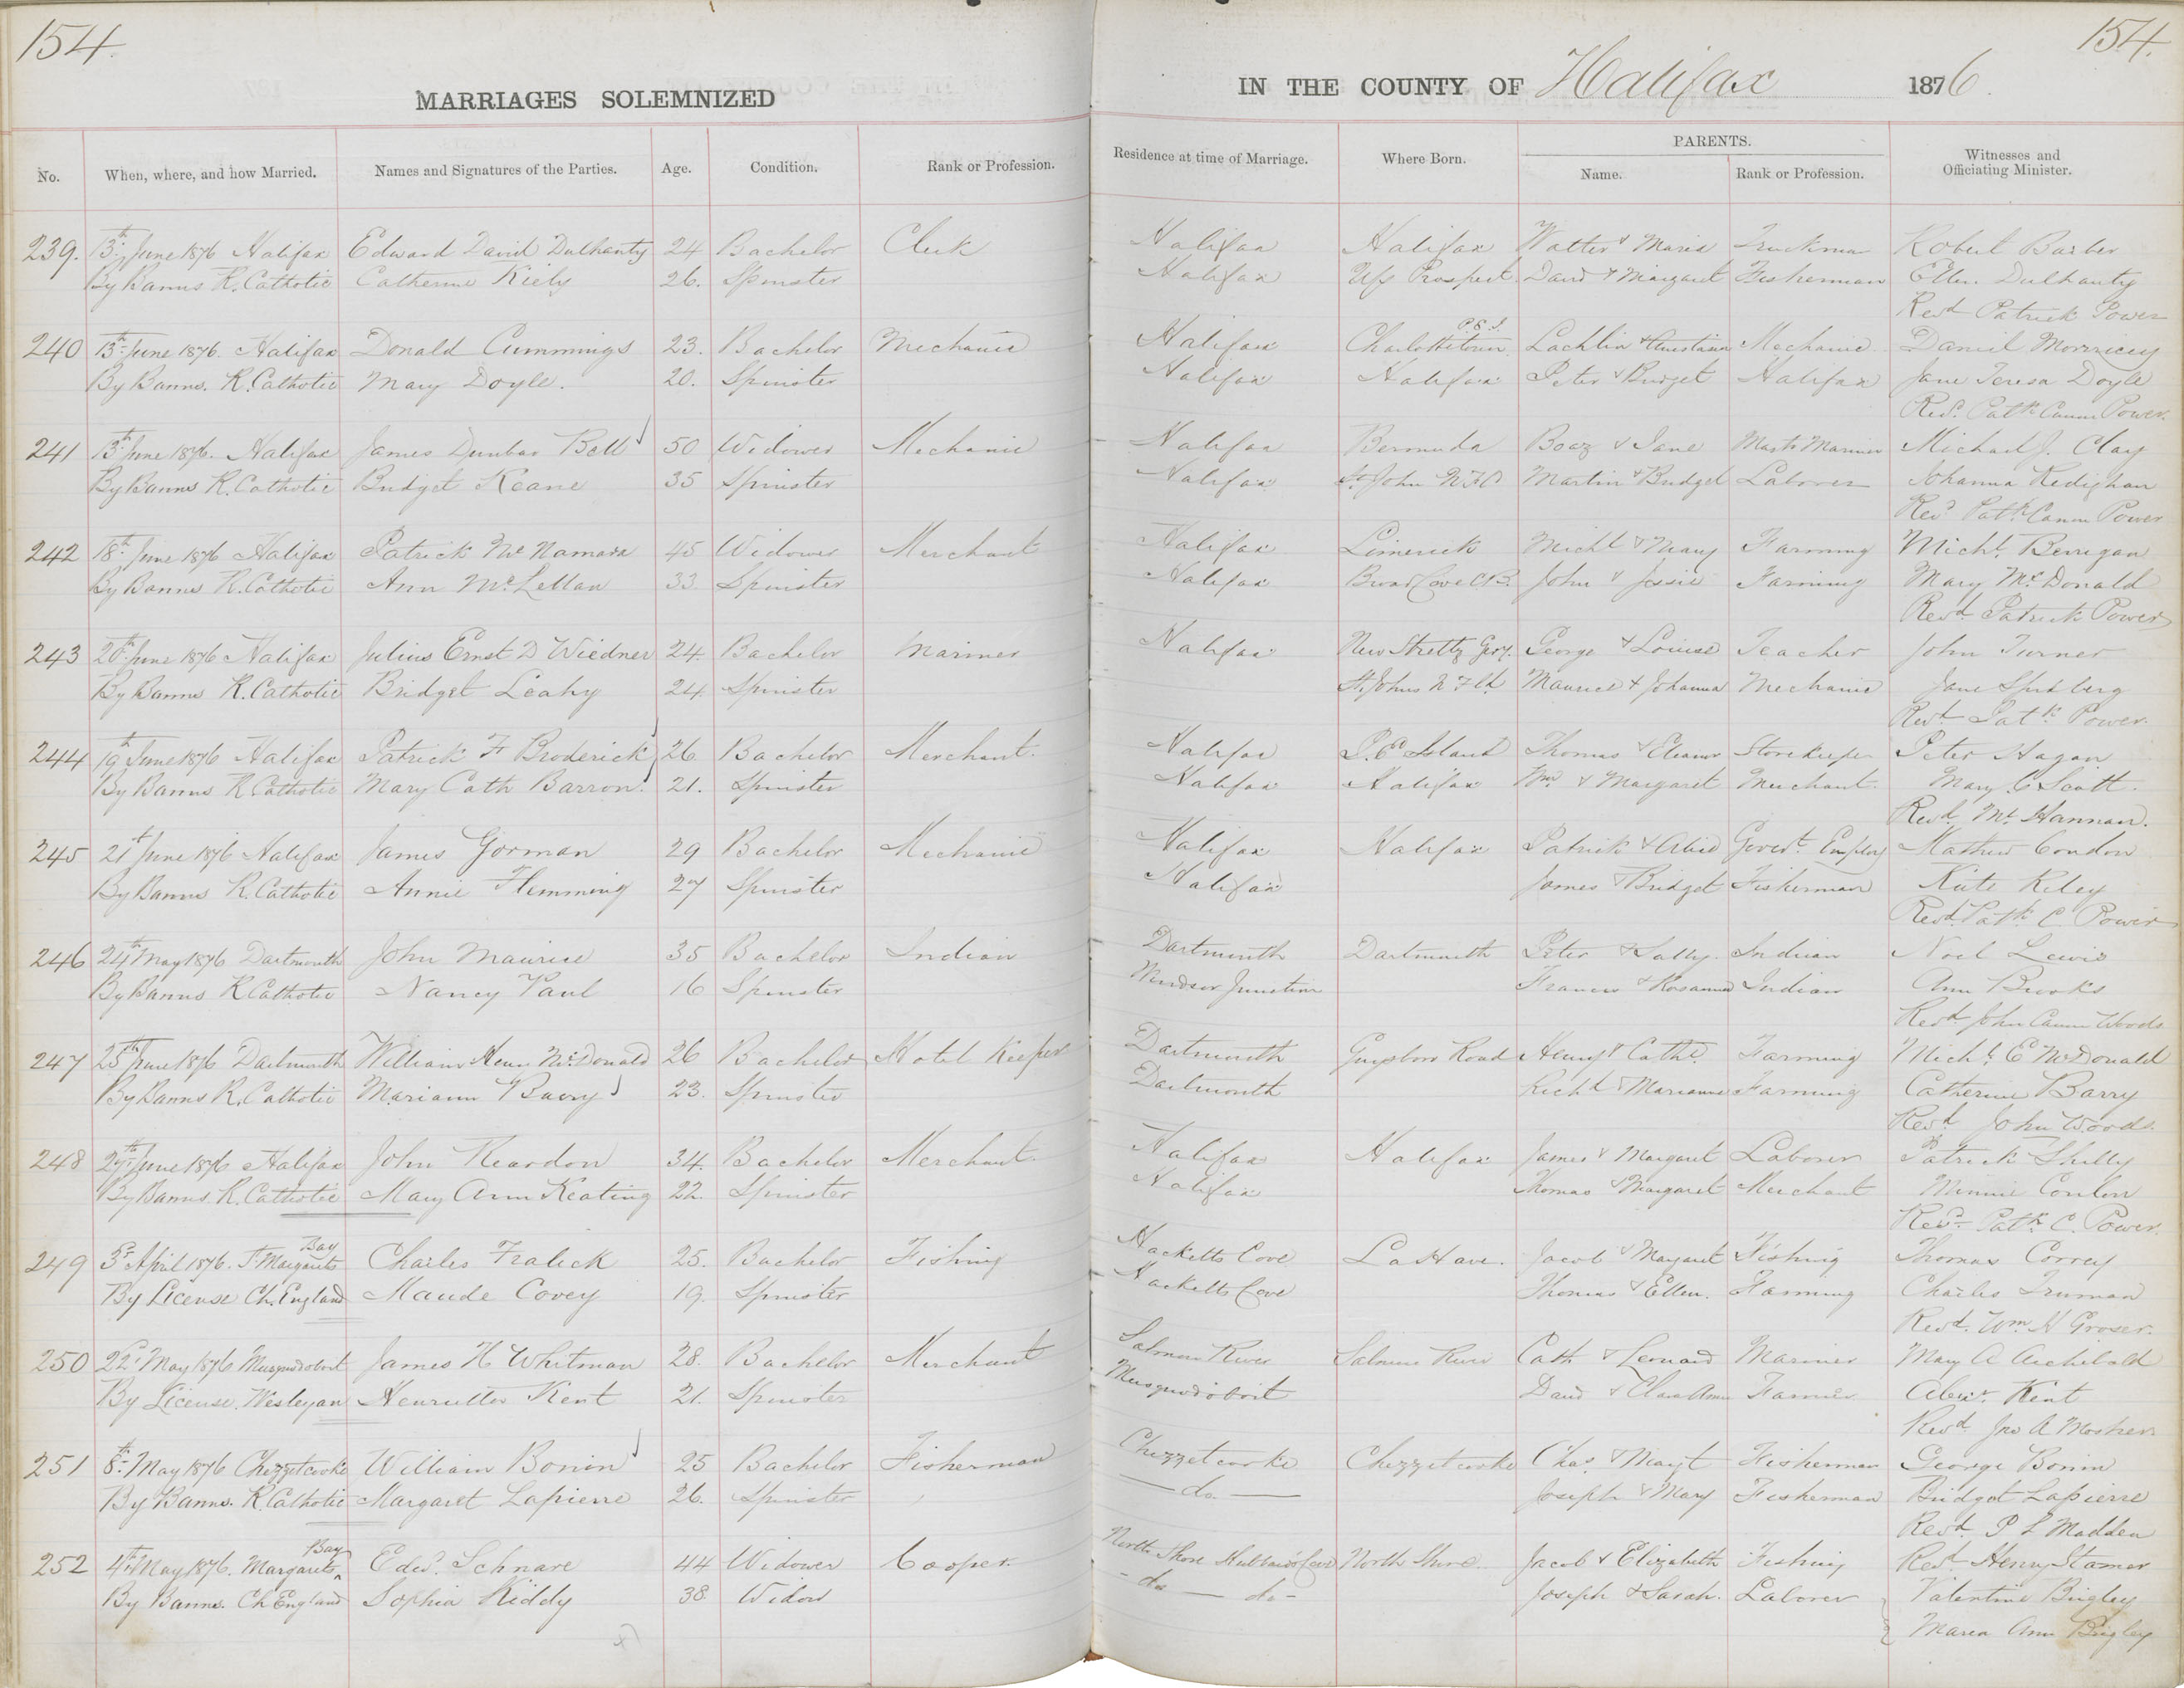 154.
154.
MARRIAGES SOLEMNIZED
IN THE COUNTY OF Halifax 1876.
No. When, where, and how Married. Names and Signatures of the Parties. Age. Condition. Rank or Profession. Residence at time of Marriage. Where Born. PARENTS. Name. Rank or Profession. Witnesses and Officiating Minister.
239. 13th June 1876 Halifax Edward David Dulhanty 24 Bachelor Clerk Halifax Halifax Walter & Maria Truckman Robert Barber
By Banns R. Catholic Catherine Kiely 26. Spinster Halifax Up Prospect David & Margaret Fisherman Ellen Dulhanty
Revd Patrick Power
240 13th June 1876. Halifax Donald Cummings 23. Bachelor Mechanic Halifax Charlottetown P.E.I. Lachlin & Christiana Mechanic Daniel
By Banns. R. Catholic Mary Doyle. 20. Spinster Halifax Halifax Peter & Bridget Halifax Jane Teresa Doyle
Revd. Patk Canon Power.
241 13th June 1876. Halifax James Dunbar Bell 50 Widower Mechanic Halifax Bermuda Boaz & Jane Mastr Mariner Michael J. Clay
By Banns R. Catholic Bridget Keane 35 Spinster Halifax St John NFD Martin & Bridget Laborer Johanna Kedighan
Revd Patk Canon Power
242 18th June 1876 Halifax Patrick McNamara 45 Widower Merchant Halifax Limerick Michl & Mary Farming Michl. Berrigan
By Banns R. Catholic Ann McLellan 33. Spinster Halifax Broad Cove C.B. John & Jessie Farming Mary McDonald
Revd. Patrick Power
243 20th June 1876 Halifax Julius Ernst D Wiedner 24. Bachelor Mariner Halifax New Strettz Gery. George & Louise Teacher John Turner
By Banns R. Catholic Bridget Leahy 24 Spinster St. Johns N Fld. Maurice & Johanna Mechanic Jane
Revd. Patk Power.
244 19th June 1876 Halifax Patrick F Broderick 26. Bachelor Merchant. Halifax P.E Island Thomas & Eleanor Storekeeper Peter Hagan
By Banns R Catholic Mary Cath Barron. 21. Spinster Halifax Halifax Wm & Margaret Merchant. Mary C Scott.
Revd. Mr Hannan.
245 21st June 1876 Halifax James Gorman 29 Bachelor Mechanic Halifax Halifax Patrick & Alice Govert. Employ Mathew Condon
By Banns R. Catholic Annie Flemming 27 Spinster Halifax James & Bridget Fisherman Kate Riley
Revd. Patk C. Power
246 24th May 1876 Dartmouth John Maurice 35 Bachelor Indian Dartmouth Dartmouth Peter & Sally. Indian Noel Lewis
By Banns R Catholic Nancy Paul 16 Spinster Windsor Junction Francis & Rosanna Indian Ann Brooks
Revd. John Canon Woods
247 25th June 1876 Dartmouth William Henry McDonald 26 Bachelor Hotel Keeper Dartmouth Guysboro Road Henry & Cathe. Farming Michl. E McDonald
By Banns R. Catholic Mariann Barry 23. Spinster Dartmouth Richd & Marianne Farming Catherine Barry
Revd. John Woods.
248 27th June 1876 Halifax John Reardon 34. Bachelor Merchant. Halifax Halifax James & Margaret Laborer Patrick Skelly
By Banns. R. Catholic Mary Ann Keating 22. Spinster Halifax Thomas & Margaret Merchant Minnie Conlon
Revd. Patk. C. Power.
249 3d April 1876. St Margarets Bay Charles Fralick 25. Bachelor Fishing Hacketts Cove LaHave. Jacob & Margaret Fishing Thomas Correy
By License Ch. England Maude Covey 19. Spinster Hacketts Cove Thomas & Ellen. Farming Charles Truman
Revd. Wm H Groser.
250 22d May 1876 Musquodoboit James H Whitman 28. Bachelor Merchant Salmon River Salmon River Cath & Leonard Mariner Mary A Archibald
By License. Wesleyan Henrietta Kent 21. Spinster Musquodoboit David & Clara Ann Farmer Alexr. Kent
Revd. Jno A Mosher
251 8th May 1876 Chezzetcooke William Bonin 25 Bachelor Fisherman Chezzetcooke Chezzetcooke Chas. & Margt Fisherman George Bonin
By Banns. R. Catholic Margaret Lapierre 26. Spinster do. Joseph & Mary Fisherman Bridget Lapierre
Revd. P L Madden
252 4th May 1876. Margarets Bay Edwd. Schnare 44 Widower Cooper. North Shore Hubbards Cove North Shore. Jacob & Elizabeth Fishing Revd Henry Stamer
By Banns. Ch England Sophia Kiddy 38. Widow do do Joseph & Sarah. Laborer Valentine Bigley
Maria Ann Bigley